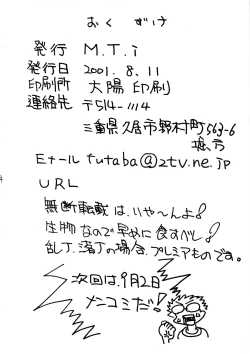 おくづけ
発行 M.T.i
発行日 2001. 8. 11
印刷所 大陽印刷
連絡先 〒514-1114
三重県久居市野村町563-6
堀方
Eメール tutaba@ztv.ne.jp
URL
無断転載は、いや〜んよ!
生物なので早めに食すべし!
乱丁、落丁の場合、プレミアものです。
次回は、9月2日
メンコミだ!